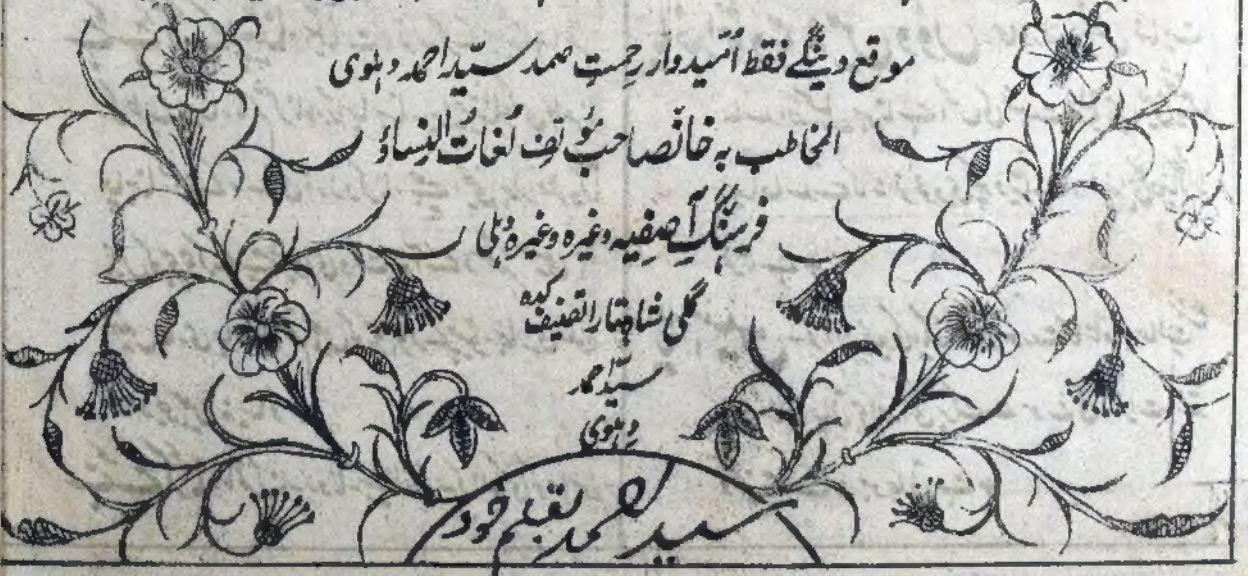 موقع دینگے فقط اُمیدوار رحمتِ صمد سیّد احمد دہلوی
المخاطب بہ خانصاحب مُؤلّف لُغاتُ النِساؤ
فرہنگِ آصفیہ وغیرہ وغیرہ دہلی
گلی شاہتارا تصنیف کدہ
سیّد احمد
دہلوی
سید احمد بقلم خود